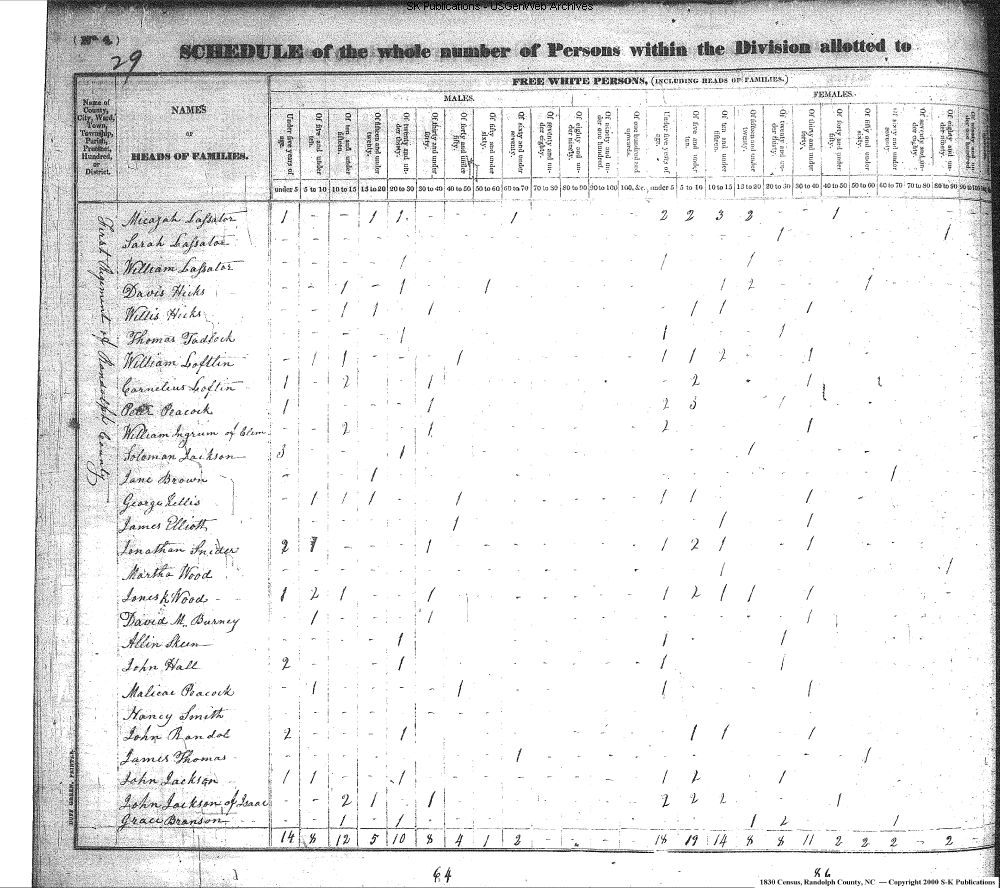 SK Publications - USGenWeb Archives
(No 4)
29
SCHEDULE of the whole number of Persons within the Division allotted to
FREE WHITE PERSONS, (INCLUDING HEADS OF FAMILIES.)
MALES. FEMALES.
Name of County, City, Ward, Town, Township, Parish, Precinct, Hundred, or District.
NAMES
OF
HEADS OF FAMILIES.
Under five years of age. Of five and under ten. Of ten and under fifteen. Of fifteen and under twenty. Of twenty and under thirty. Of thirty and under forty. Of forty and under fifty. Of fifty and under sixty. Of sixty and under seventy. Of seventy and under eighty. Of eighty and under ninety. Of ninety and under one hundred. Of one hundred and upwards. Under five years of age. Of five and under ten. Of ten and under fifteen. Of fifteen and under twenty. Of twenty and under thirty. Of thirty and under forty. Of forty and under fifty. Of fifty and under sixty. Of sixty and under seventy. Of seventy and under eighty. Of eighty and under ninety.
under 5 5 to 10 10 to 15 15 to 20 20 to 30 30 to 40 40 to 50 50 to 60 60 to 70 70 to 80 80 to 90 90 to 100 100, &c. under 5 5 to 10 10 to 15 15 to 20 20 to 30 30 to 40 40 to 50 50 to 60 60 to 70 70 to 80 80 to 90 90 to 100
First Regiment of Randolph County
Micajah Lassater 1 - - 1 1 - - - 1 - - - - 2 2 3 2 - - 1 - - - -
Sarah Lassater - - - - - - - - - - - - - - - - - 1 - - - - - 1
William Lassater - - - - 1 - - - - - - - - 1 - - 1 - - - - - - -
Davis Hicks - - 1 - 1 - - 1 - - - - - - - 1 2 - - - 1 - - -
Willis Hicks - - 1 1 - 1 - - - - - - - - 1 1 - - 1 - - - - -
Thomas Tadlock - - - - 1 - - - - - - - - 1 - - - 1 - - - - - -
William Loftlin - 1 1 - - - 1 - - - - - - 1 1 2 - - 1 - - - - -
Cornelius Loflin 1 - 2 - - 1 - - - - - - - - 2 - - - 1
Peter Peacock 1 - - - - 1 - - - - - - - 2 3 - - 1 - - - - - -
William Ingrum of Clem 2 1 2 1
Soloman Jackson 3 - - - 1 - - - - - - - - - - - 1 - - - - - - -
Jane Brown - - - 1 - - - - - - - - - - - - - - - - - 1 - -
George Lellis - 1 1 1 - - 1 - - - - - - 1 1 - - - 1 - - - - -
James Elliott - - - - - - 1 - - - - - - - - 1 - - 1 - - - - -
Jonathan Snider 2 1 - - - 1 - - - - - - - 1 2 1 - - 1 - - - - -
Martha Wood - - - - - - - - - - - - - - - 1 - - - - - - - 1
Wood 1 2 1 - - 1 - - - - - - - 1 2 1 1 - 1 - - - - -
David M. Burney - 1 - - - 1 - - - - - - - - - - - - 1 - - - - -
Allin Skeen - - - - 1 - - - - - - - - 1 - - - 1 - - - - - -
John Hall 2 - - - 1 - - - - - - - - 1 - - - 1 - - - - - -
Malicai Peacock - 1 - - - - 1 - - - - - - 1 - - - - 1 - - - - -
Nancy Smith - - - - - - - - - - - - - - - - - - - - - - - -
John Randol 2 - - - 1 - - - - - - - - - 1 1 - - 1 - - - - -
James Thomas - - - - - - - - 1 - - - - - - - - - - - 1 - - -
John Jackson 1 1 - - 1 - - - - - - - - 1 2 - - 1 - - - - - -
John Jackson of Isaac - - 2 1 - 1 - - - - - - - 2 2 2 - - - 1 - - - -
Grace Branson - - 1 - 1 - - - - - - - - - - - 1 2 - - - 1 - -
14 8 12 5 10 8 4 1 2 - - - - 18 19 14 8 8 11 2 2 2 - 2
64 86
DUFF GREEN, PRINTER.
1830 Census, Randolph County, NC — Copyright 2000 S-K Publications